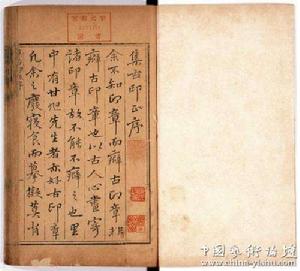 集古印正序
余不知印章而癖古印章
癖古印章也以古人心畫寄
諸印章故不能不癖之也里
中有甘旭先生者亦好古印章
凡余之廢寢食而摹擬莫
中国艺术论坛
www.china-yishu.com